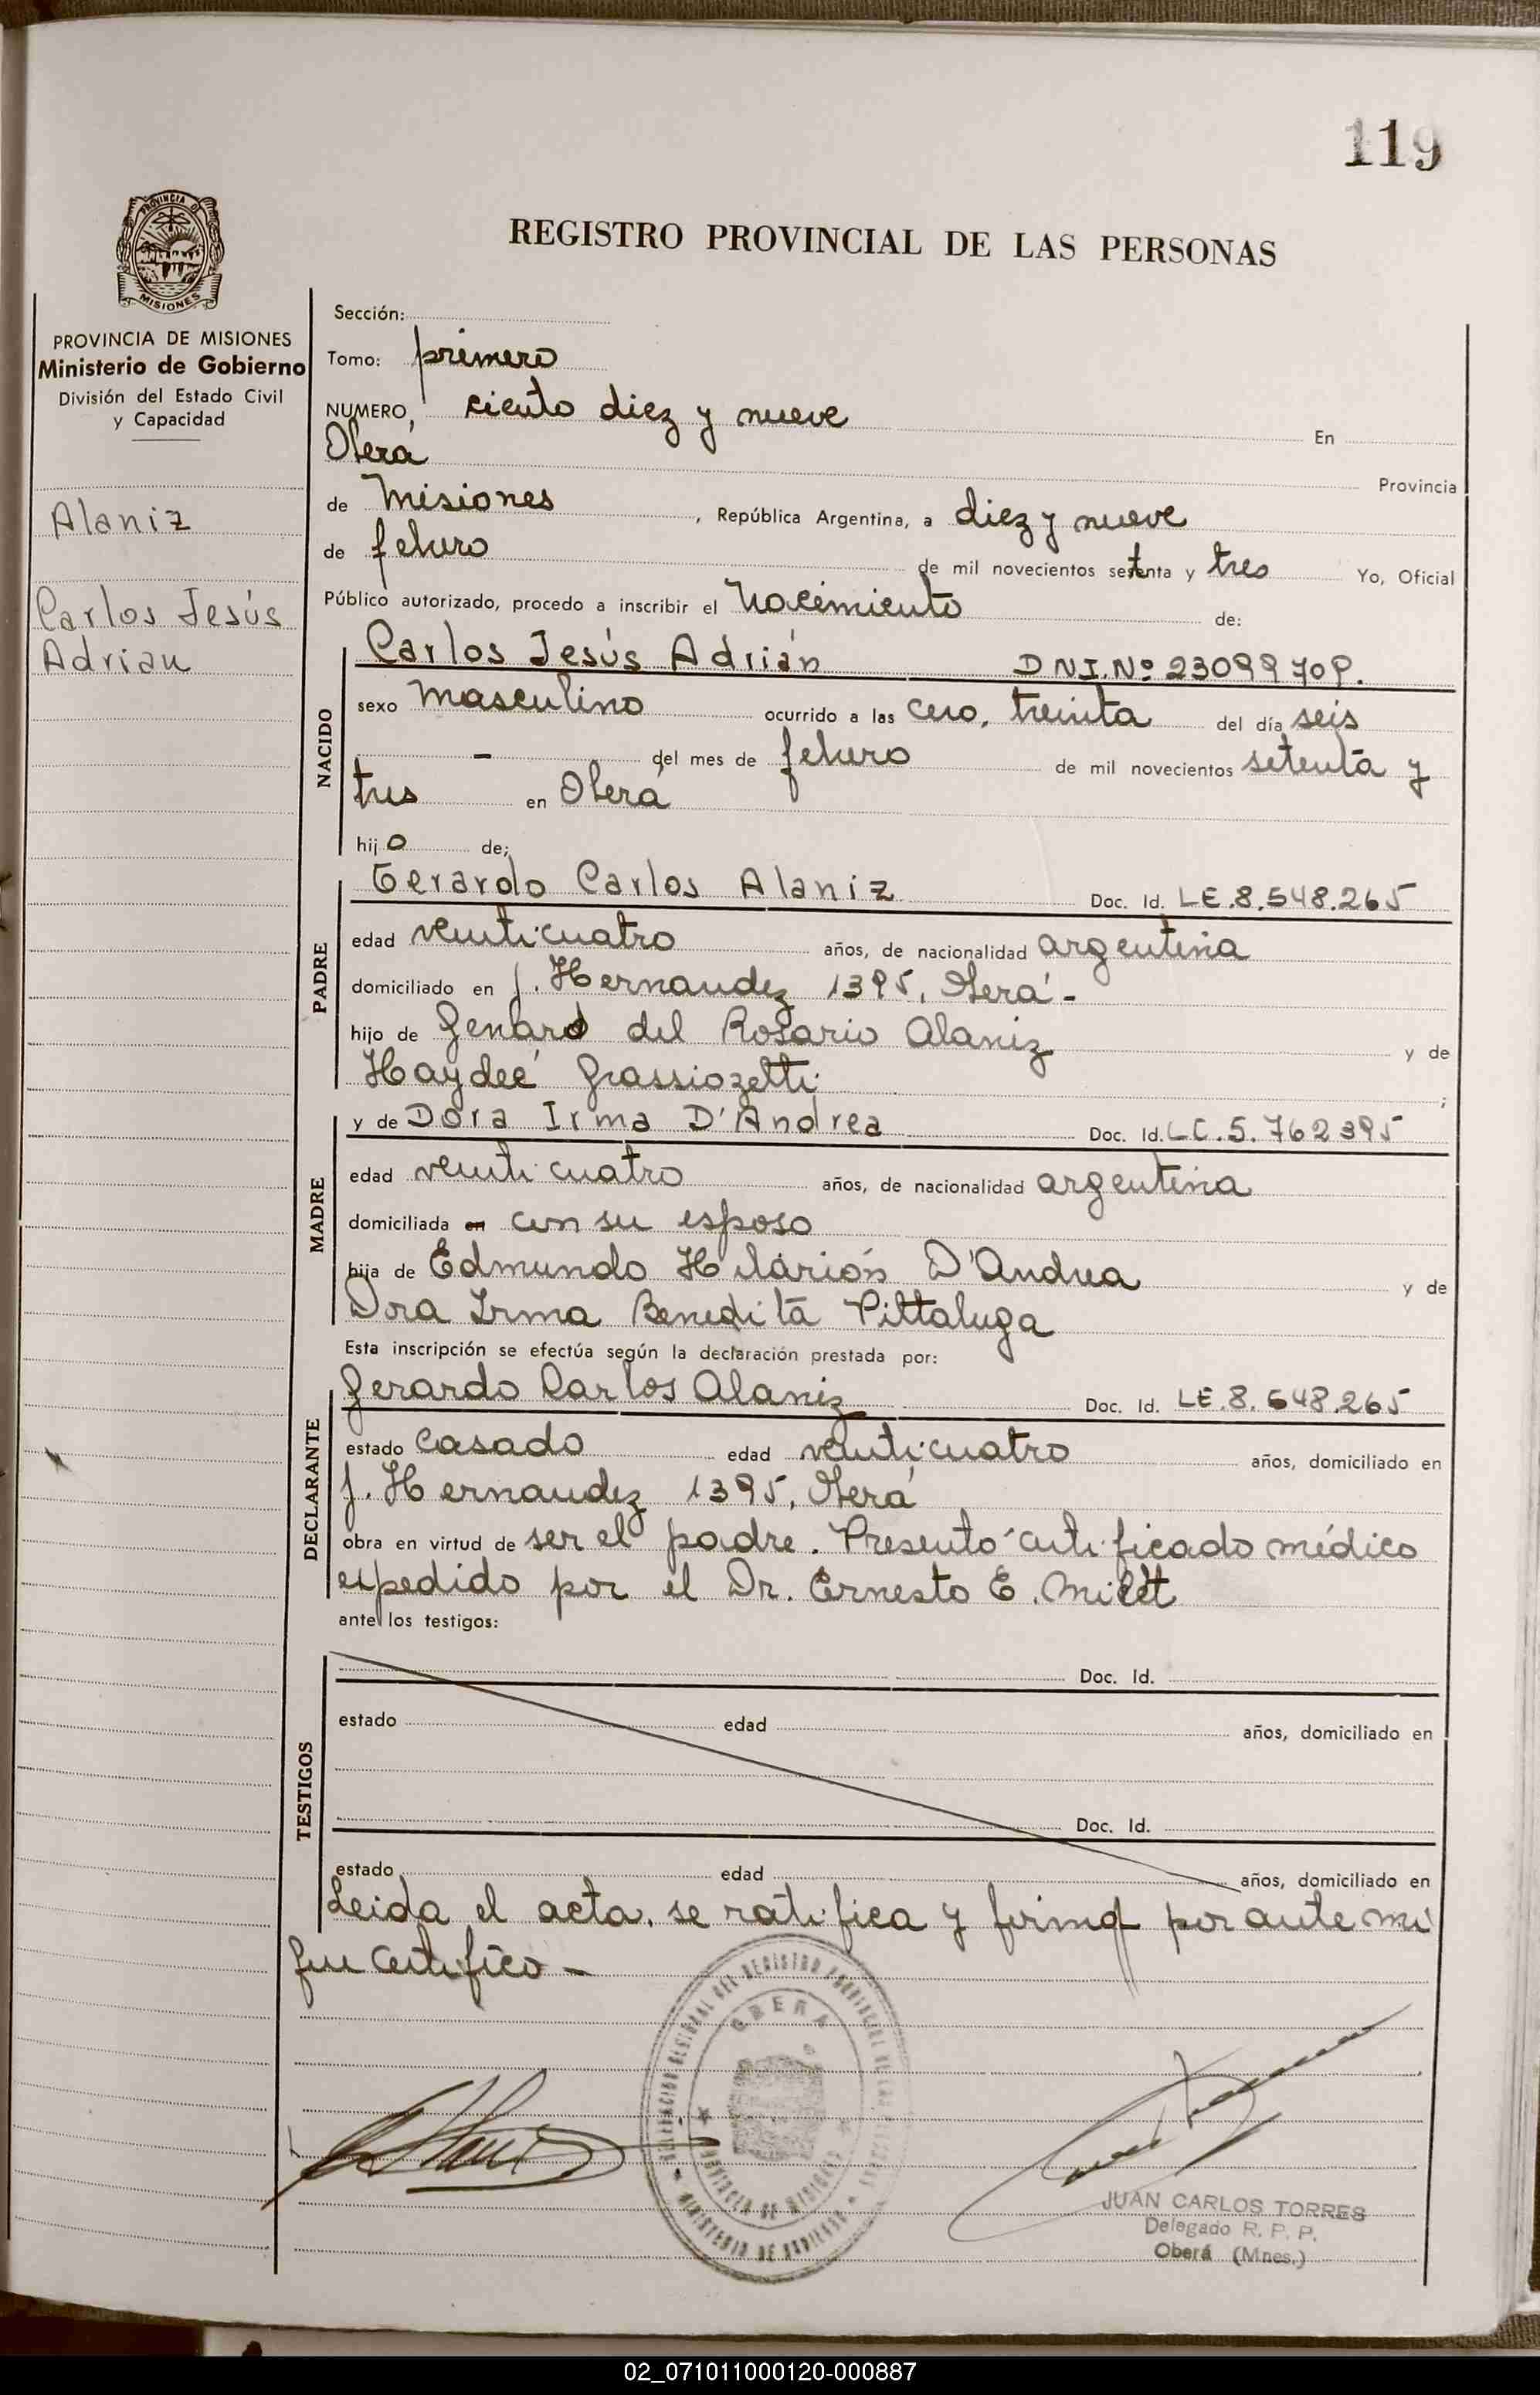 119
REGISTRO PROVINCIAL DE LAS PERSONAS
PROVINCIA DE
MISIONES
PROVINCIA DE MISIONES
Ministerio de Gobierno
División del Estado Civil
y Capacidad
Alaniz
Carlos Jesús
Adrian
Sección:
Tomo: primero
NUMERO, ciento diez y nueve En
Oberá Provincia
de Misiones, República Argentina, a diez y nueve
de febrero de mil novecientos setenta y tres Yo, Oficial
Público autorizado, procedo a inscribir el Nacimiento de:
NACIDO
Carlos Jesús Adrián DNI. Nº 23099709.
sexo masculino ocurrido a las cero, treinta del día seis
- del mes de febrero de mil novecientos setenta y
tres en Oberá
hijo de;
PADRE
Gerardo Carlos Alaniz Doc. Id. LE.8.548.265
edad veinticuatro años, de nacionalidad argentina
domiciliado en J. Hernandez 1395, Oberá -
hijo de Genaro del Rosario Alaniz y de
Haydeé Grassiozetti ;
MADRE
y de Dora Irma D'Andrea Doc. Id. LC.5.762395
edad veinticuatro años, de nacionalidad argentina
domiciliada en con su esposo
hija de Edmundo Hilarión D'Andrea y de
Dora Irma Benedita Pittaluga
Esta inscripción se efectúa según la declaración prestada por:
DECLARANTE
Gerardo Carlos Alaniz Doc. Id. LE.8.548.265
estado casado edad veinticuatro años, domiciliado en
J. Hernandez 1395, Oberá
obra en virtud de ser el padre. Presentó certificado médico
expedido por el Dr. Ernesto E. Milet
ante los testigos:
TESTIGOS
Doc. Id.
estado edad años, domiciliado en
Doc. Id.
estado edad años, domiciliado en
Leida el acta, se ratifica y firma por ante mi
que certifico -
OBERA
PROVINCIA DE MISIONES
MINISTERIO DE GOBIERNO
JUAN CARLOS TORRES
Delegado R. P. P.
Oberá (Mnes.)
02_071011000120-000887